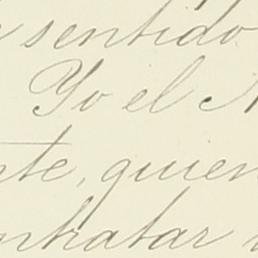 sentido
Yo el
nte, quien
ntratar